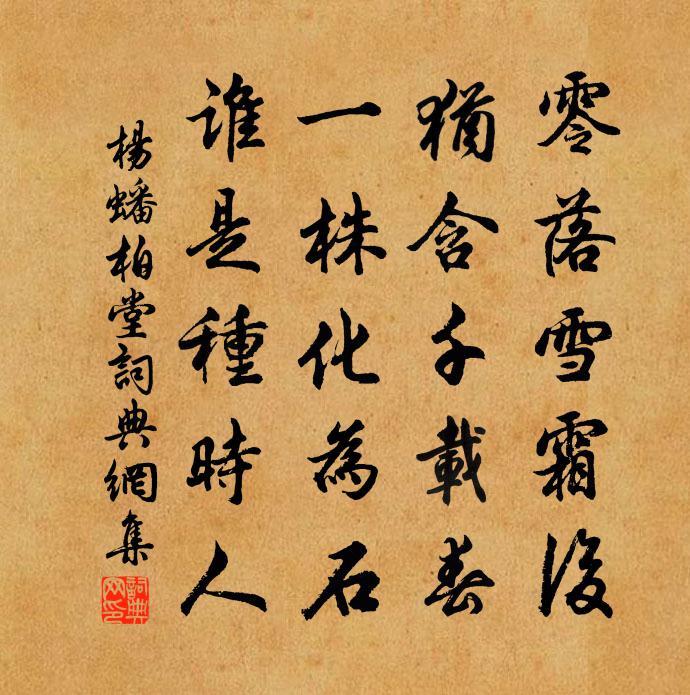 零落雪霜後
猶含千載春
一株化為石
誰是種時人
楊蟠柏堂詞典網集
詞典網印